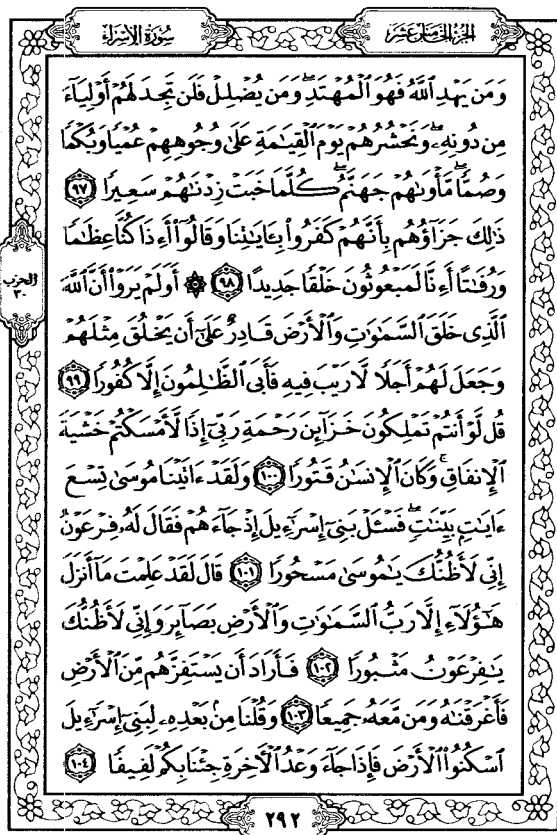 سُورَةُ الإِسْرَاءِ
الجُزْءُ الخَامِسَ عَشَرَ
وَمَن يَهْدِ ٱللَّهُ فَهُوَ ٱلْمُهْتَدِۖ وَمَن يُضْلِلْ فَلَن تَجِدَ لَهُمْ أَوْلِيَآءَ
مِن دُونِهِۦۖ وَنَحْشُرُهُمْ يَوْمَ ٱلْقِيَٰمَةِ عَلَىٰ وُجُوهِهِمْ عُمْيًا وَبُكْمًا
وَصُمًّاۖ مَّأْوَىٰهُمْ جَهَنَّمُۖ كُلَّمَا خَبَتْ زِدْنَٰهُمْ سَعِيرًا ٩٧
ذَٰلِكَ جَزَآؤُهُم بِأَنَّهُمْ كَفَرُوا۟ بِـَٔايَٰتِنَا وَقَالُوٓا۟ أَءِذَا كُنَّا عِظَٰمًا
وَرُفَٰتًا أَءِنَّا لَمَبْعُوثُونَ خَلْقًا جَدِيدًا ٩٨ ۞ أَوَلَمْ يَرَوْا۟ أَنَّ ٱللَّهَ
ٱلَّذِى خَلَقَ ٱلسَّمَٰوَٰتِ وَٱلْأَرْضَ قَادِرٌ عَلَىٰٓ أَن يَخْلُقَ مِثْلَهُمْ
وَجَعَلَ لَهُمْ أَجَلًا لَّا رَيْبَ فِيهِ فَأَبَى ٱلظَّٰلِمُونَ إِلَّا كُفُورًا ٩٩
قُل لَّوْ أَنتُمْ تَمْلِكُونَ خَزَآئِنَ رَحْمَةِ رَبِّىٓ إِذًا لَّأَمْسَكْتُمْ خَشْيَةَ
ٱلْإِنفَاقِۚ وَكَانَ ٱلْإِنسَٰنُ قَتُورًا ١٠٠ وَلَقَدْ ءَاتَيْنَا مُوسَىٰ تِسْعَ
ءَايَٰتٍۭ بَيِّنَٰتٍۖ فَسْـَٔلْ بَنِىٓ إِسْرَٰٓءِيلَ إِذْ جَآءَهُمْ فَقَالَ لَهُۥ فِرْعَوْنُ
إِنِّى لَأَظُنُّكَ يَٰمُوسَىٰ مَسْحُورًا ١٠١ قَالَ لَقَدْ عَلِمْتَ مَآ أَنزَلَ
هَٰٓؤُلَآءِ إِلَّا رَبُّ ٱلسَّمَٰوَٰتِ وَٱلْأَرْضِ بَصَآئِرَ وَإِنِّى لَأَظُنُّكَ
يَٰفِرْعَوْنُ مَثْبُورًا ١٠٢ فَأَرَادَ أَن يَسْتَفِزَّهُم مِّنَ ٱلْأَرْضِ
فَأَغْرَقْنَٰهُ وَمَن مَّعَهُۥ جَمِيعًا ١٠٣ وَقُلْنَا مِنۢ بَعْدِهِۦ لِبَنِىٓ إِسْرَٰٓءِيلَ
ٱسْكُنُوا۟ ٱلْأَرْضَ فَإِذَا جَآءَ وَعْدُ ٱلْءَاخِرَةِ جِئْنَا بِكُمْ لَفِيفًا ١٠٤
الحزب
٣٠
٢٩٢